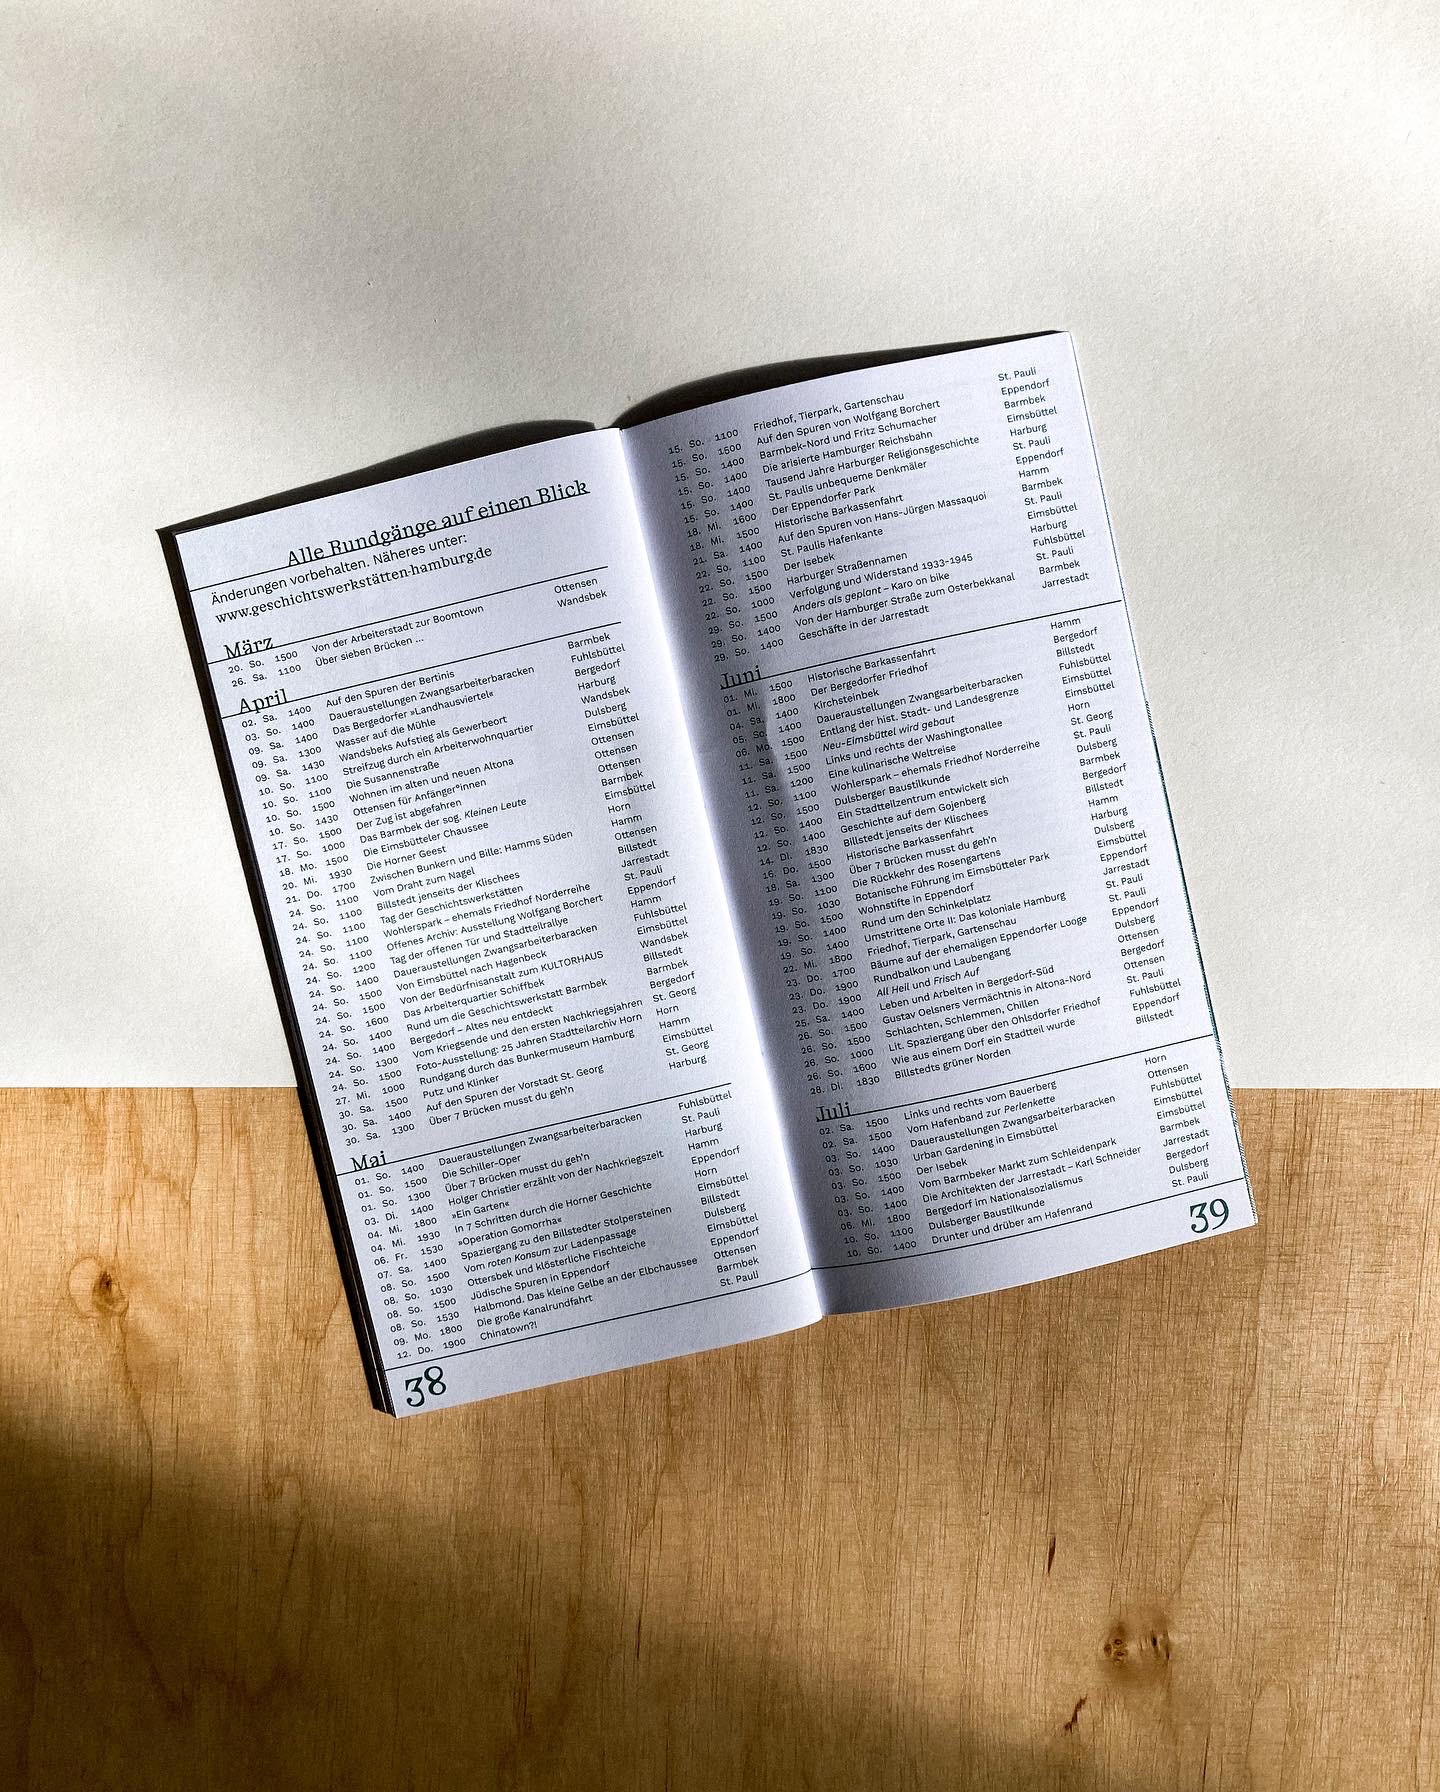 Alle Rundgänge auf einen Blick
Änderungen vorbehalten. Näheres unter:
www.geschichtswerkstätten-hamburg.de
März
20. So. 1500 Von der Arbeiterstadt zur Boomtown Ottensen
26. Sa. 1100 Über sieben Brücken ... Wandsbek
April
02. Sa. 1400 Auf den Spuren der Bertinis Barmbek
03. So. 1400 Daueraustellungen Zwangsarbeiterbaracken Fuhlsbüttel
09. Sa. 1400 Das Bergedorfer »Landhausviertel« Bergedorf
09. Sa. 1300 Wasser auf die Mühle Harburg
09. Sa. 1430 Wandsbeks Aufstieg als Gewerbeort Wandsbek
10. So. 1100 Streifzug durch ein Arbeiterwohnquartier Dulsberg
10. So. 1100 Die Susannenstraße Eimsbüttel
10. So. 1500 Wohnen im alten und neuen Altona Ottensen
10. So. 1430 Ottensen für Anfänger*innen Ottensen
17. So. 1500 Der Zug ist abgefahren Ottensen
17. So. 1000 Das Barmbek der sog. Kleinen Leute Barmbek
18. Mo. 1500 Die Eimsbütteler Chaussee Eimsbüttel
20. Mi. 1930 Die Horner Geest Horn
21. Do. 1700 Zwischen Bunkern und Bille: Hamms Süden Hamm
24. So. 1100 Vom Draht zum Nagel Ottensen
24. So. 1100 Billstedt jenseits der Klischees Billstedt
24. So. 1100 Tag der Geschichtswerkstätten Jarrestadt
24. So. 1100 Wohlerspark – ehemals Friedhof Norderreihe St. Pauli
24. So. Offenes Archiv: Ausstellung Wolfgang Borchert Eppendorf
24. So. 1200 Tag der offenen Tür und Stadtteilrallye Hamm
24. So. 1400 Daueraustellungen Zwangsarbeiterbaracken Fuhlsbüttel
24. So. 1500 Von Eimsbüttel nach Hagenbeck Eimsbüttel
24. So. 1500 Von der Bedürfnisanstalt zum KULTORHAUS Wandsbek
24. So. 1600 Das Arbeiterquartier Schiffbek Billstedt
24. So. 1400 Rund um die Geschichtswerkstatt Barmbek Barmbek
24. So. 1400 Bergedorf – Altes neu entdeckt Bergedorf
24. So. 1300 Vom Kriegsende und den ersten Nachkriegsjahren St. Georg
24. So. 1500 Foto-Ausstellung: 25 Jahren Stadtteilarchiv Horn Horn
27. Mi. 1000 Rundgang durch das Bunkermuseum Hamburg Hamm
30. Sa. 1500 Putz und Klinker Eimsbüttel
30. Sa. 1400 Auf den Spuren der Vorstadt St. Georg St. Georg
30. Sa. 1300 Über 7 Brücken musst du geh'n Harburg
Mai
01. So. 1400 Daueraustellungen Zwangsarbeiterbaracken Fuhlsbüttel
01. So. 1500 Die Schiller-Oper St. Pauli
01. So. 1300 Über 7 Brücken musst du geh'n Harburg
03. Di. 1400 Holger Christier erzählt von der Nachkriegszeit Hamm
04. Mi. 1800 »Ein Garten« Eppendorf
04. Mi. 1930 In 7 Schritten durch die Horner Geschichte Horn
06. Fr. 1530 »Operation Gomorrha« Eimsbüttel
07. Sa. 1400 Spaziergang zu den Billstedter Stolpersteinen Billstedt
08. So. 1500 Vom roten Konsum zur Ladenpassage Dulsberg
08. So. 1030 Ottersbek und klösterliche Fischteiche Eimsbüttel
08. So. 1500 Jüdische Spuren in Eppendorf Eppendorf
08. So. 1530 Halbmond. Das kleine Gelbe an der Elbchaussee Ottensen
09. Mo. 1800 Die große Kanalrundfahrt Barmbek
12. Do. 1900 Chinatown?! St. Pauli
38
15. So. 1100 Friedhof, Tierpark, Gartenschau St. Pauli
15. So. 1500 Auf den Spuren von Wolfgang Borchert Eppendorf
15. So. 1400 Barmbek-Nord und Fritz Schumacher Barmbek
15. So. 1400 Die arisierte Hamburger Reichsbahn Eimsbüttel
15. So. 1400 Tausend Jahre Harburger Religionsgeschichte Harburg
15. So. 1400 St. Paulis unbequeme Denkmäler St. Pauli
18. Mi. 1600 Der Eppendorfer Park Eppendorf
18. Mi. 1500 Historische Barkassenfahrt Hamm
21. Sa. 1400 Auf den Spuren von Hans-Jürgen Massaquoi Barmbek
22. So. 1100 St. Paulis Hafenkante St. Pauli
22. So. 1500 Der Isebek Eimsbüttel
22. So. 1500 Harburger Straßennamen Harburg
22. So. 1000 Verfolgung und Widerstand 1933-1945 Fuhlsbüttel
29. So. 1500 Anders als geplant – Karo on bike St. Pauli
29. So. 1400 Von der Hamburger Straße zum Osterbekkanal Barmbek
29. So. 1400 Geschäfte in der Jarrestadt Jarrestadt
Juni
01. Mi. 1500 Historische Barkassenfahrt Hamm
01. Mi. 1800 Der Bergedorfer Friedhof Bergedorf
04. Sa. 1400 Kirchsteinbek Billstedt
05. So. 1400 Daueraustellungen Zwangsarbeiterbaracken Fuhlsbüttel
06. Mo. 1500 Entlang der hist. Stadt- und Landesgrenze Eimsbüttel
11. Sa. 1500 Neu-Eimsbüttel wird gebaut Eimsbüttel
11. Sa. 1500 Links und rechts der Washingtonallee Horn
11. Sa. 1200 Eine kulinarische Weltreise St. Georg
12. So. 1100 Wohlerspark – ehemals Friedhof Norderreihe St. Pauli
12. So. 1500 Dulsberger Baustilkunde Dulsberg
12. So. 1400 Ein Stadtteilzentrum entwickelt sich Barmbek
12. So. 1400 Geschichte auf dem Gojenberg Bergedorf
14. Di. 1830 Billstedt jenseits der Klischees Billstedt
16. Do. 1500 Historische Barkassenfahrt Hamm
18. Sa. 1300 Über 7 Brücken musst du geh'n Harburg
19. So. 1100 Die Rückkehr des Rosengartens Dulsberg
19. So. 1030 Botanische Führung im Eimsbütteler Park Eimsbüttel
19. So. 1500 Wohnstifte in Eppendorf Eppendorf
19. So. 1400 Rund um den Schinkelplatz Jarrestadt
19. So. 1400 Umstrittene Orte II: Das koloniale Hamburg St. Pauli
22. Mi. 1800 Friedhof, Tierpark, Gartenschau St. Pauli
23. Do. 1700 Bäume auf der ehemaligen Eppendorfer Looge Eppendorf
23. Do. 1900 Rundbalkon und Laubengang Dulsberg
23. Do. 1900 All Heil und Frisch Auf Ottensen
25. Sa. 1400 Leben und Arbeiten in Bergedorf-Süd Bergedorf
26. So. 1500 Gustav Oelsners Vermächtnis in Altona-Nord Ottensen
26. So. 1500 Schlachten, Schlemmen, Chillen St. Pauli
26. So. 1000 Lit. Spaziergang über den Ohlsdorfer Friedhof Fuhlsbüttel
26. So. 1600 Wie aus einem Dorf ein Stadtteil wurde Eppendorf
28. Di. 1830 Billstedts grüner Norden Billstedt
Juli
02. Sa. 1500 Links und rechts vom Bauerberg Horn
02. Sa. 1500 Vom Hafenband zur Perlenkette Ottensen
03. So. 1400 Daueraustellungen Zwangsarbeiterbaracken Fuhlsbüttel
03. So. 1030 Urban Gardening in Eimsbüttel Eimsbüttel
03. So. 1500 Der Isebek Eimsbüttel
03. So. 1400 Vom Barmbeker Markt zum Schleidenpark Barmbek
Die Architekten der Jarrestadt – Karl Schneider Jarrestadt
06. Mi. 1800 Bergedorf im Nationalsozialismus Bergedorf
10. So. 1100 Dulsberger Baustilkunde Dulsberg
10. So. 1400 Drunter und drüber am Hafenrand St. Pauli
39